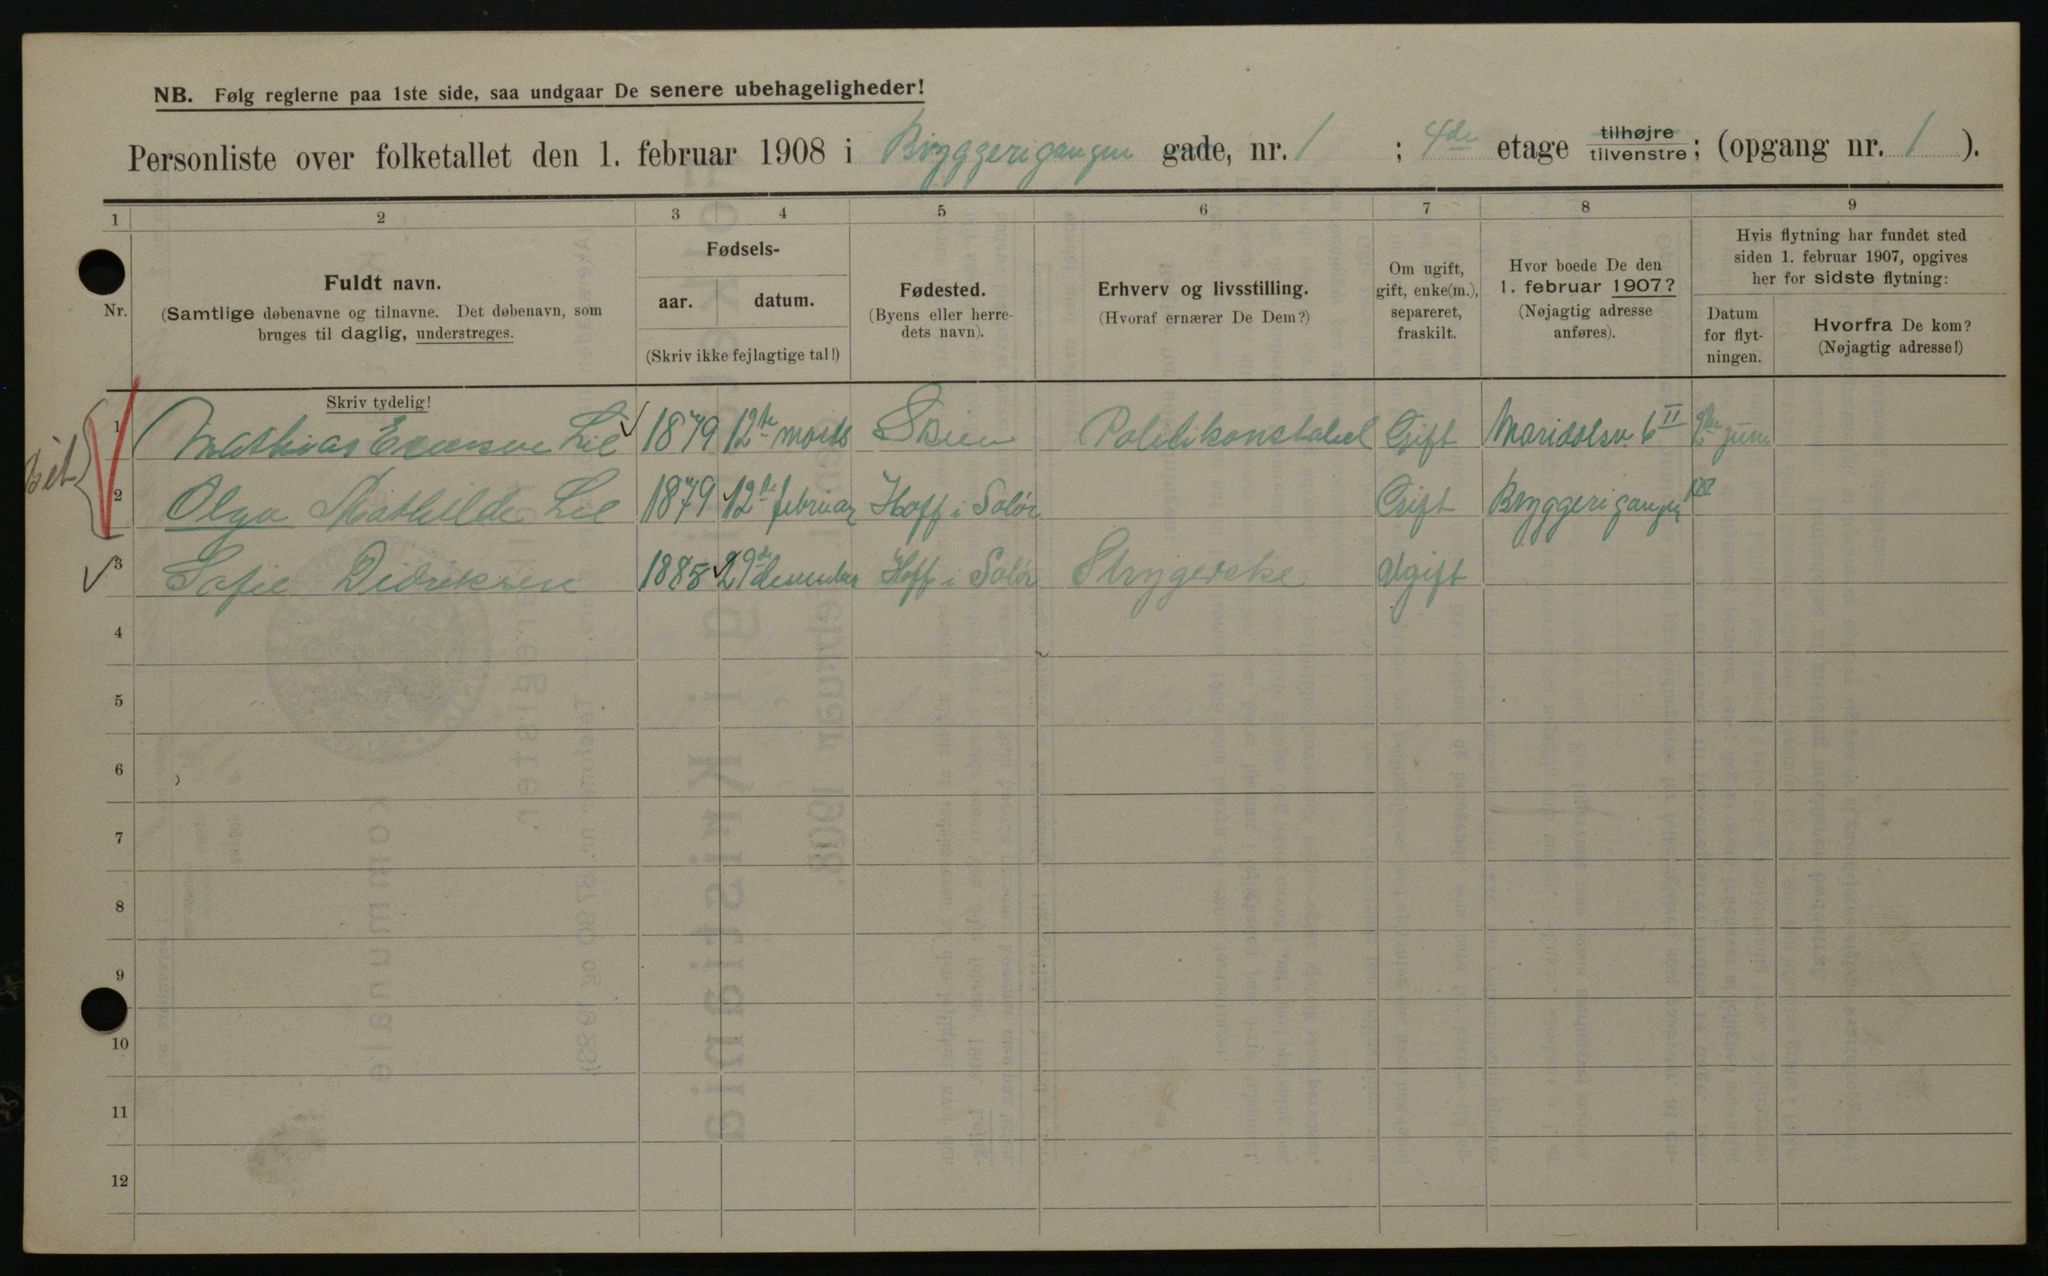 NB. Følg reglerne paa 1ste side, saa undgaar De senere ubehageligheder!
Personliste over folketallet den 1. februar 1908 i Bryggerigangen gade, nr. 1 ; 4de etage tilhøjre tilvenstre; (opgang nr. 1 ).
1 2 3 4 5 6 7 8 9
Nr.
Fuldt navn.
(Samtlige døbenavne og tilnavne. Det døbenavn, som
bruges til daglig, understreges.
Skriv tydelig!
Fødsels-
aar. datum.
(Skriv ikke fejlagtige tal!)
Fødested.
(Byens eller herre-
dets navn).
Erhverv og livsstilling.
(Hvoraf ernærer De Dem?)
Om ugift,
gift, enke(m.),
separeret,
fraskilt.
Hvor boede De den
1. februar 1907?
(Nøjagtig adresse
anføres).
Hvis flytning har fundet sted
siden 1. februar 1907, opgives
her for sidste flytning:
Datum
for flyt-
ningen.
Hvorfra De kom?
(Nøjagtig adresse!)
1 Mathias Lie 1879 12te marts Skien Politikonstabel Gift Maridalsv. 6 II juni
2 Olga Mathilde Lie 1879 12te februar Hoff i Solør Gift Bryggerigangen
3 Sofie Didriksen 1885 29de desember Hoff i Solør Strygerske Ugift
4
5
6
7
8
9
10
11
12